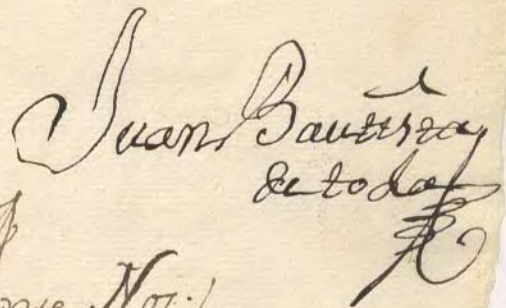 Juan Bautista
de toda
Not.